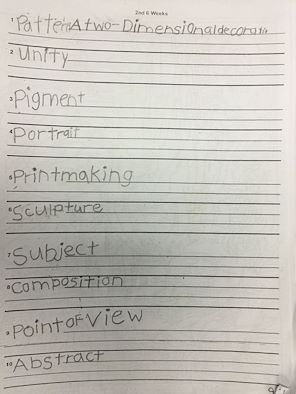 2nd 6 Weeks
1 Pattern A two-Dimensional decorativ
2 Unity
3 Pigment
4 Portrait
5 Printmaking
6 Sculpture
7 Subject
8 Composition
9 Point OF View
10 Abstract